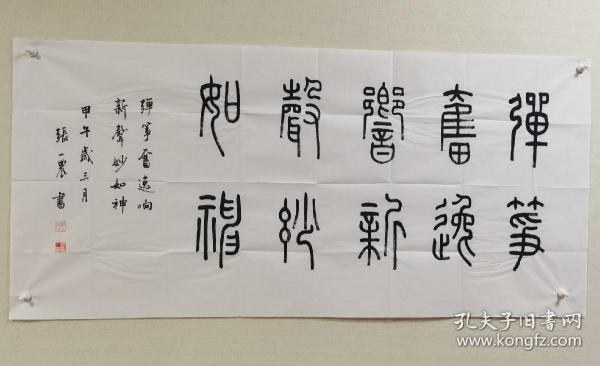 彈箏
奮逸
響新
聲妙
如神
彈箏奮逸响
新聲妙如神
甲午歲三月
張一農書
孔夫子旧书网
www.kongfz.com